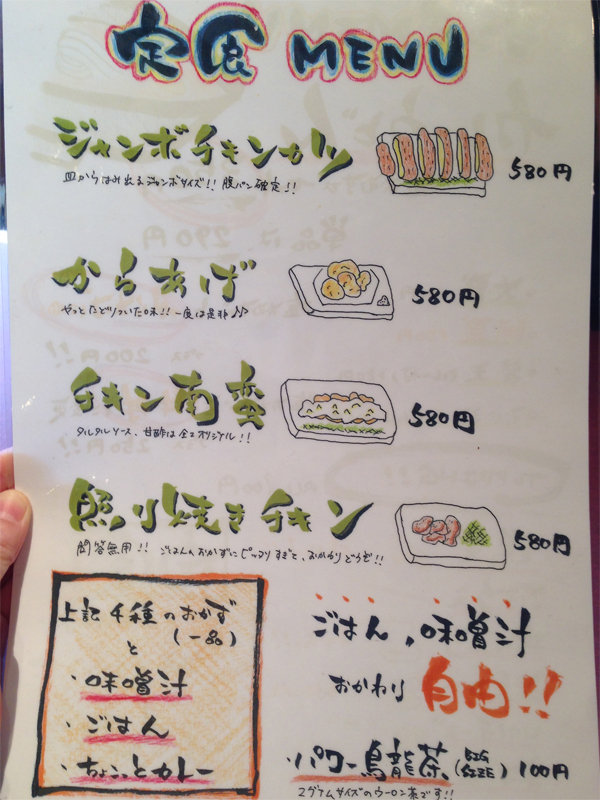 定食 MENU
ジャンボチキンカツ
580円
皿からはみ出るジャンボサイズ!! 腹パン確定!!
からあげ
580円
やっとたどりついた味!! 一度は是非♪♪
チキン南蛮
580円
タルタルソース、甘酢は全てオリジナル!!
照り焼きチキン
580円
問答無用!! ごはんのおかずにピッタリすぎて、おかわりどうぞ!!
上記4種のおかず
(一品)
と
・味噌汁
・ごはん
・ちょこっとカレー
ごはん,味噌汁
おかわり 自由!!
・パワー烏龍茶(BIG SIZE) 100円
2グラムサイズのウーロン茶です!!